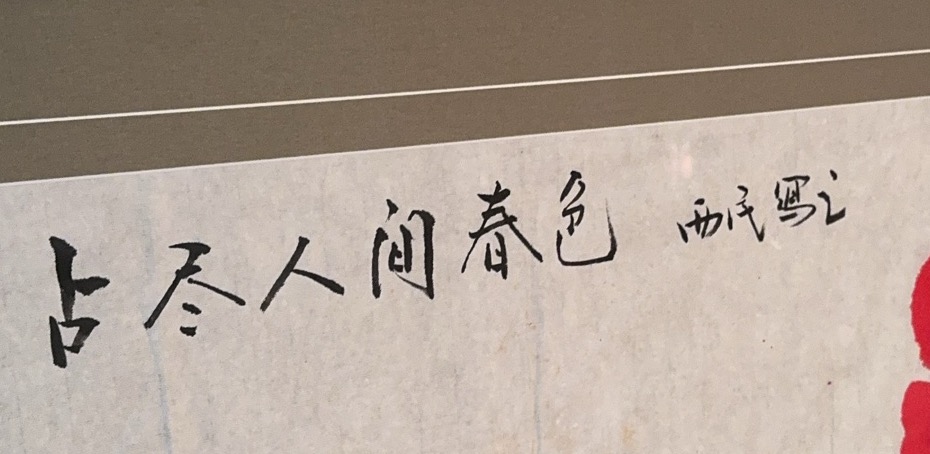 占尽人间春色 西民寫之